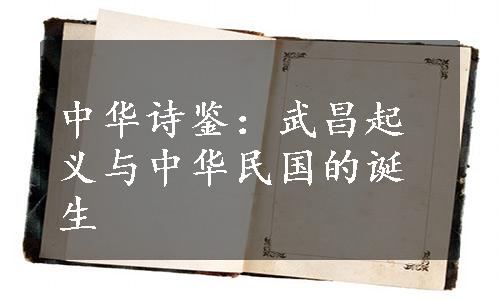 中华诗鉴：武昌起
义与中华民国的诞
生